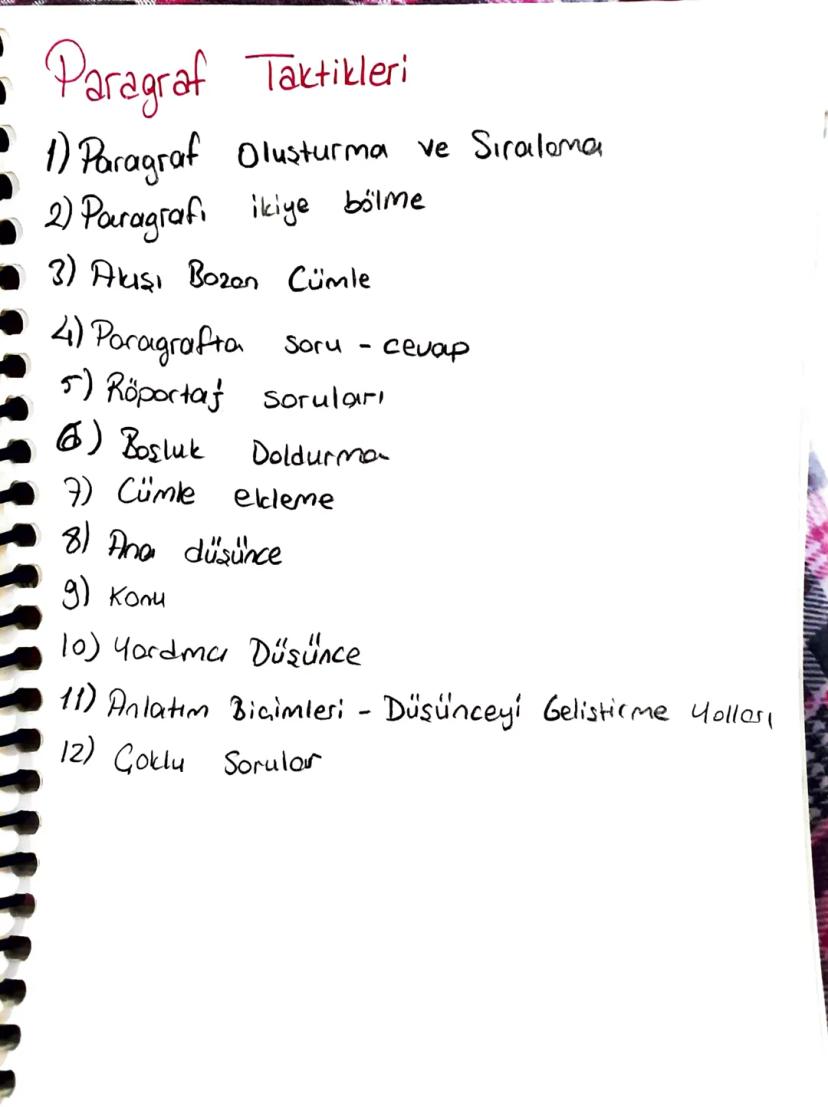 Paragraf Taktikleri
1) Paragraf Oluşturma ve Sıralama
2) Paragrafı ikiye bölme
3) Akışı Bozan Cümle
4) Paragrafta soru - cevap
5) Röportaj soruları
6) Boşluk Doldurma
7) Cümle ekleme
8) Ana düşünce
9) Konu
10) Yardımcı Düşünce
11) Anlatım Biçimleri - Düşünceyi Geliştirme Yolları
12) Çoklu Sorular